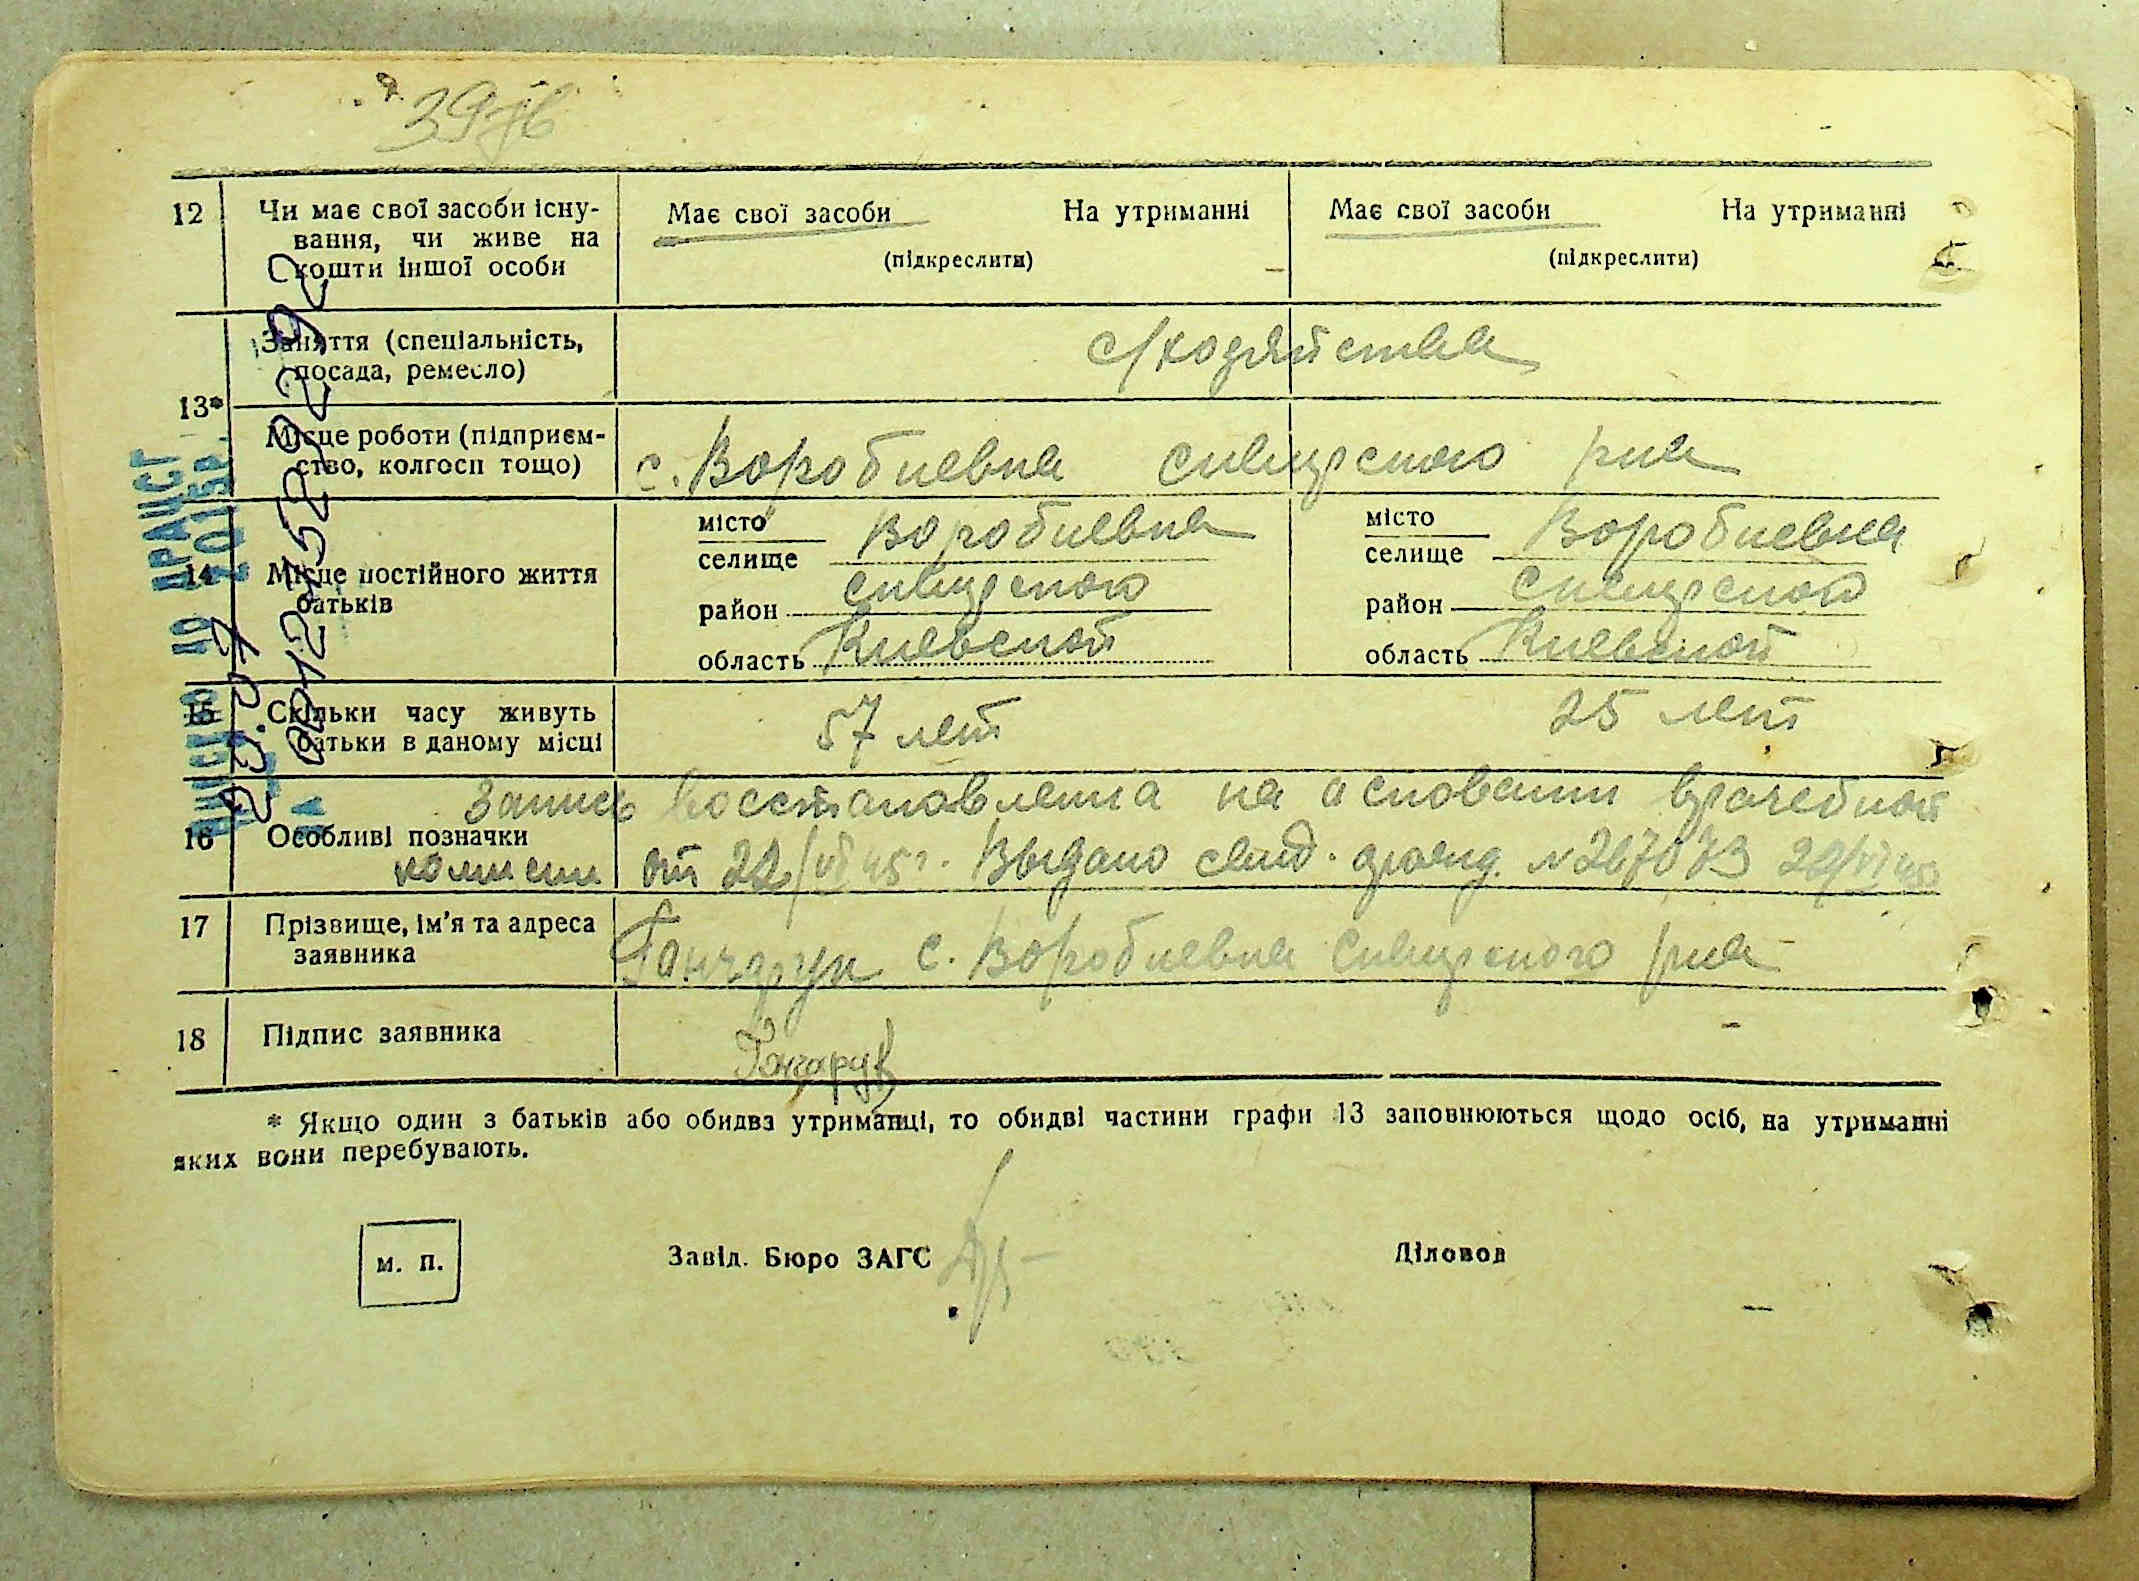 39
12 Чи має свої засоби існу- Має свої засоби На утриманні Має свої засоби На утриманні
вання, чи живе на
кошти іншої особи (підкреслити) (підкреслити)
Заняття (спеціальність, с/хозяйства
посада, ремесло)
13*
Місце роботи (підприєм- с. Воробиевка сквирского рна
ство, колгосп тощо)
місто Воробиевка місто Воробиевка
селище селище
14 Місце постійного життя сквирского сквирского
батьків район район
область Киевской область Киевской
15 Скільки часу живуть 57 лет 25 лет
батьки в даному місці
Запись восстановленна на основании врачебной
16 Особливі позначки
комисии от 22/VI 45г. Выдано свид. рожд. № 267073 29/VI
17 Прізвище, ім'я та адреса
заявника Гончарук с. Воробиевка Сквирского рна
18 Підпис заявника Гончарук
* Якщо один з батьків або обидва утриманці, то обидві частини графи 13 заповнюються щодо осіб, на утриманні
яких вони перебувають.
м. п. Завід. Бюро ЗАГС Діловод